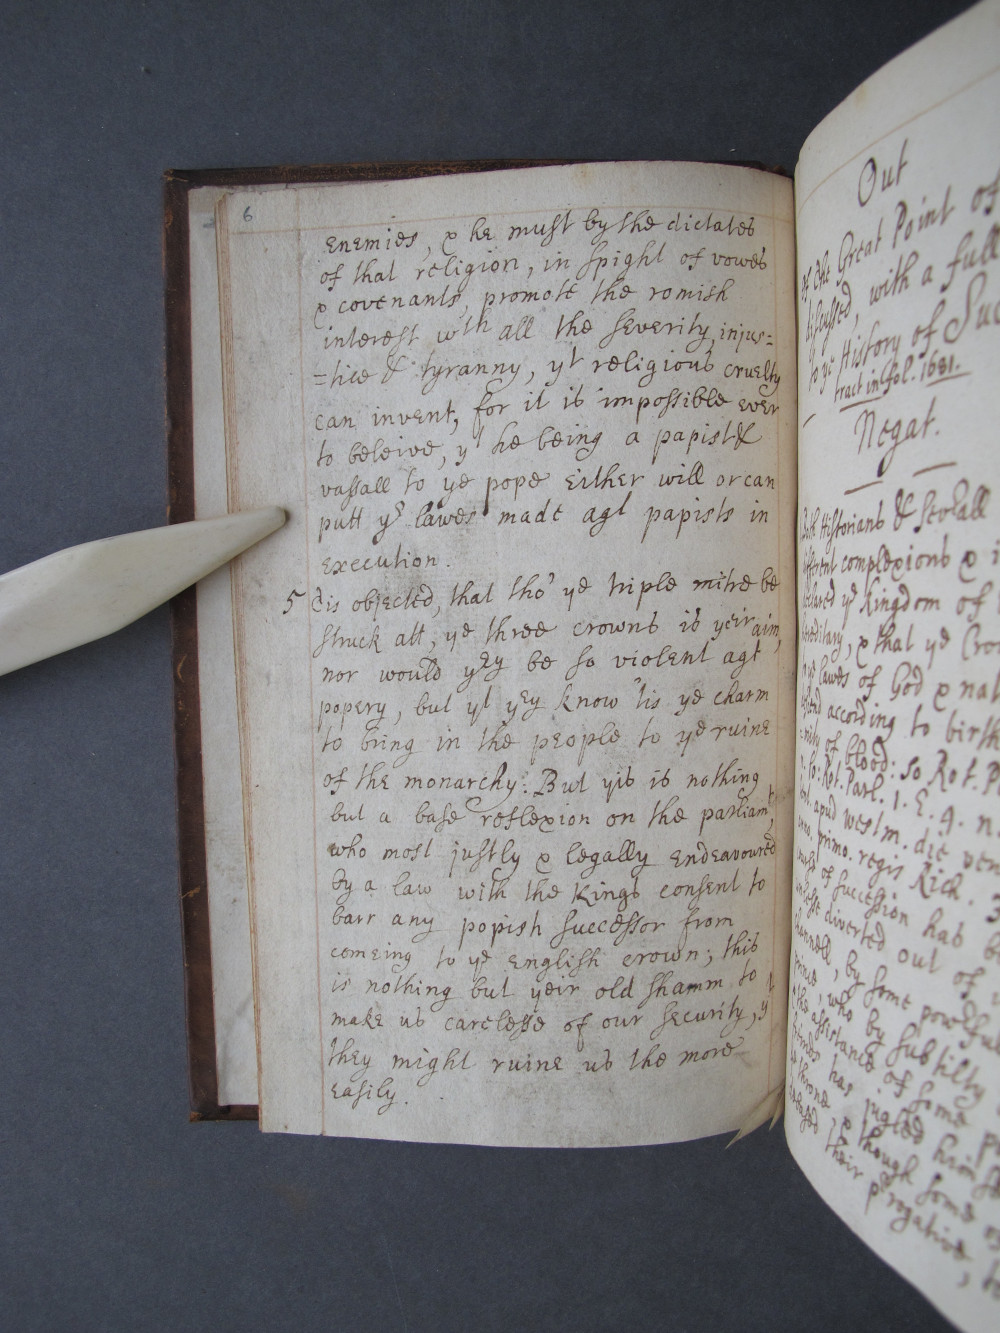 6
enemies, & he must by the dictates
of that religion, in spight of vowes
& covenants, promote the romish
interest wth all the severity, injus=
=tice & tyranny, yt religious cruelty
can invent, for it is impossible ever
to beleive, yt he being a papist &
vassall to ye pope either will or can
putt ye lawes made agt papists in
execution.
5 Tis objected, that tho' ye triple mitre be
struck att, ye three crowns is yeir aim,
nor would yey be so violent agt
popery, but yt yey know 'tis ye charm
to bring in the people to ye ruine
of the monarchy: But yis is nothing
but a base reflexion on the parliamt,
who most justly & legally endeavoured
by a law with the Kings consent to
barr any popish successor from
comeing to ye English crown; this
is nothing but yeir old shamm to
make us carelesse of our security, yt
they might ruine us the more
easily.
Out
of the Great Point of
discussed, with a full
to ye History of Suc
tract in fol. 1681.
Negat.
Both Historians & severall
different complexions & i
declared ye Kingdom of
hereditary, & that ye Cro
ye lawes of God & nat
according to birth
of blood: so Rot. P
Rot. Parl. 1. E. 4. n.
apud westm. die ven
primo. regis Rich. 3
of succession has be
diverted out of i
channell, by some powerfull
prince, who by subtilty
the assistance of some p
has jugled himse
throne, & though some
their prerogative, to